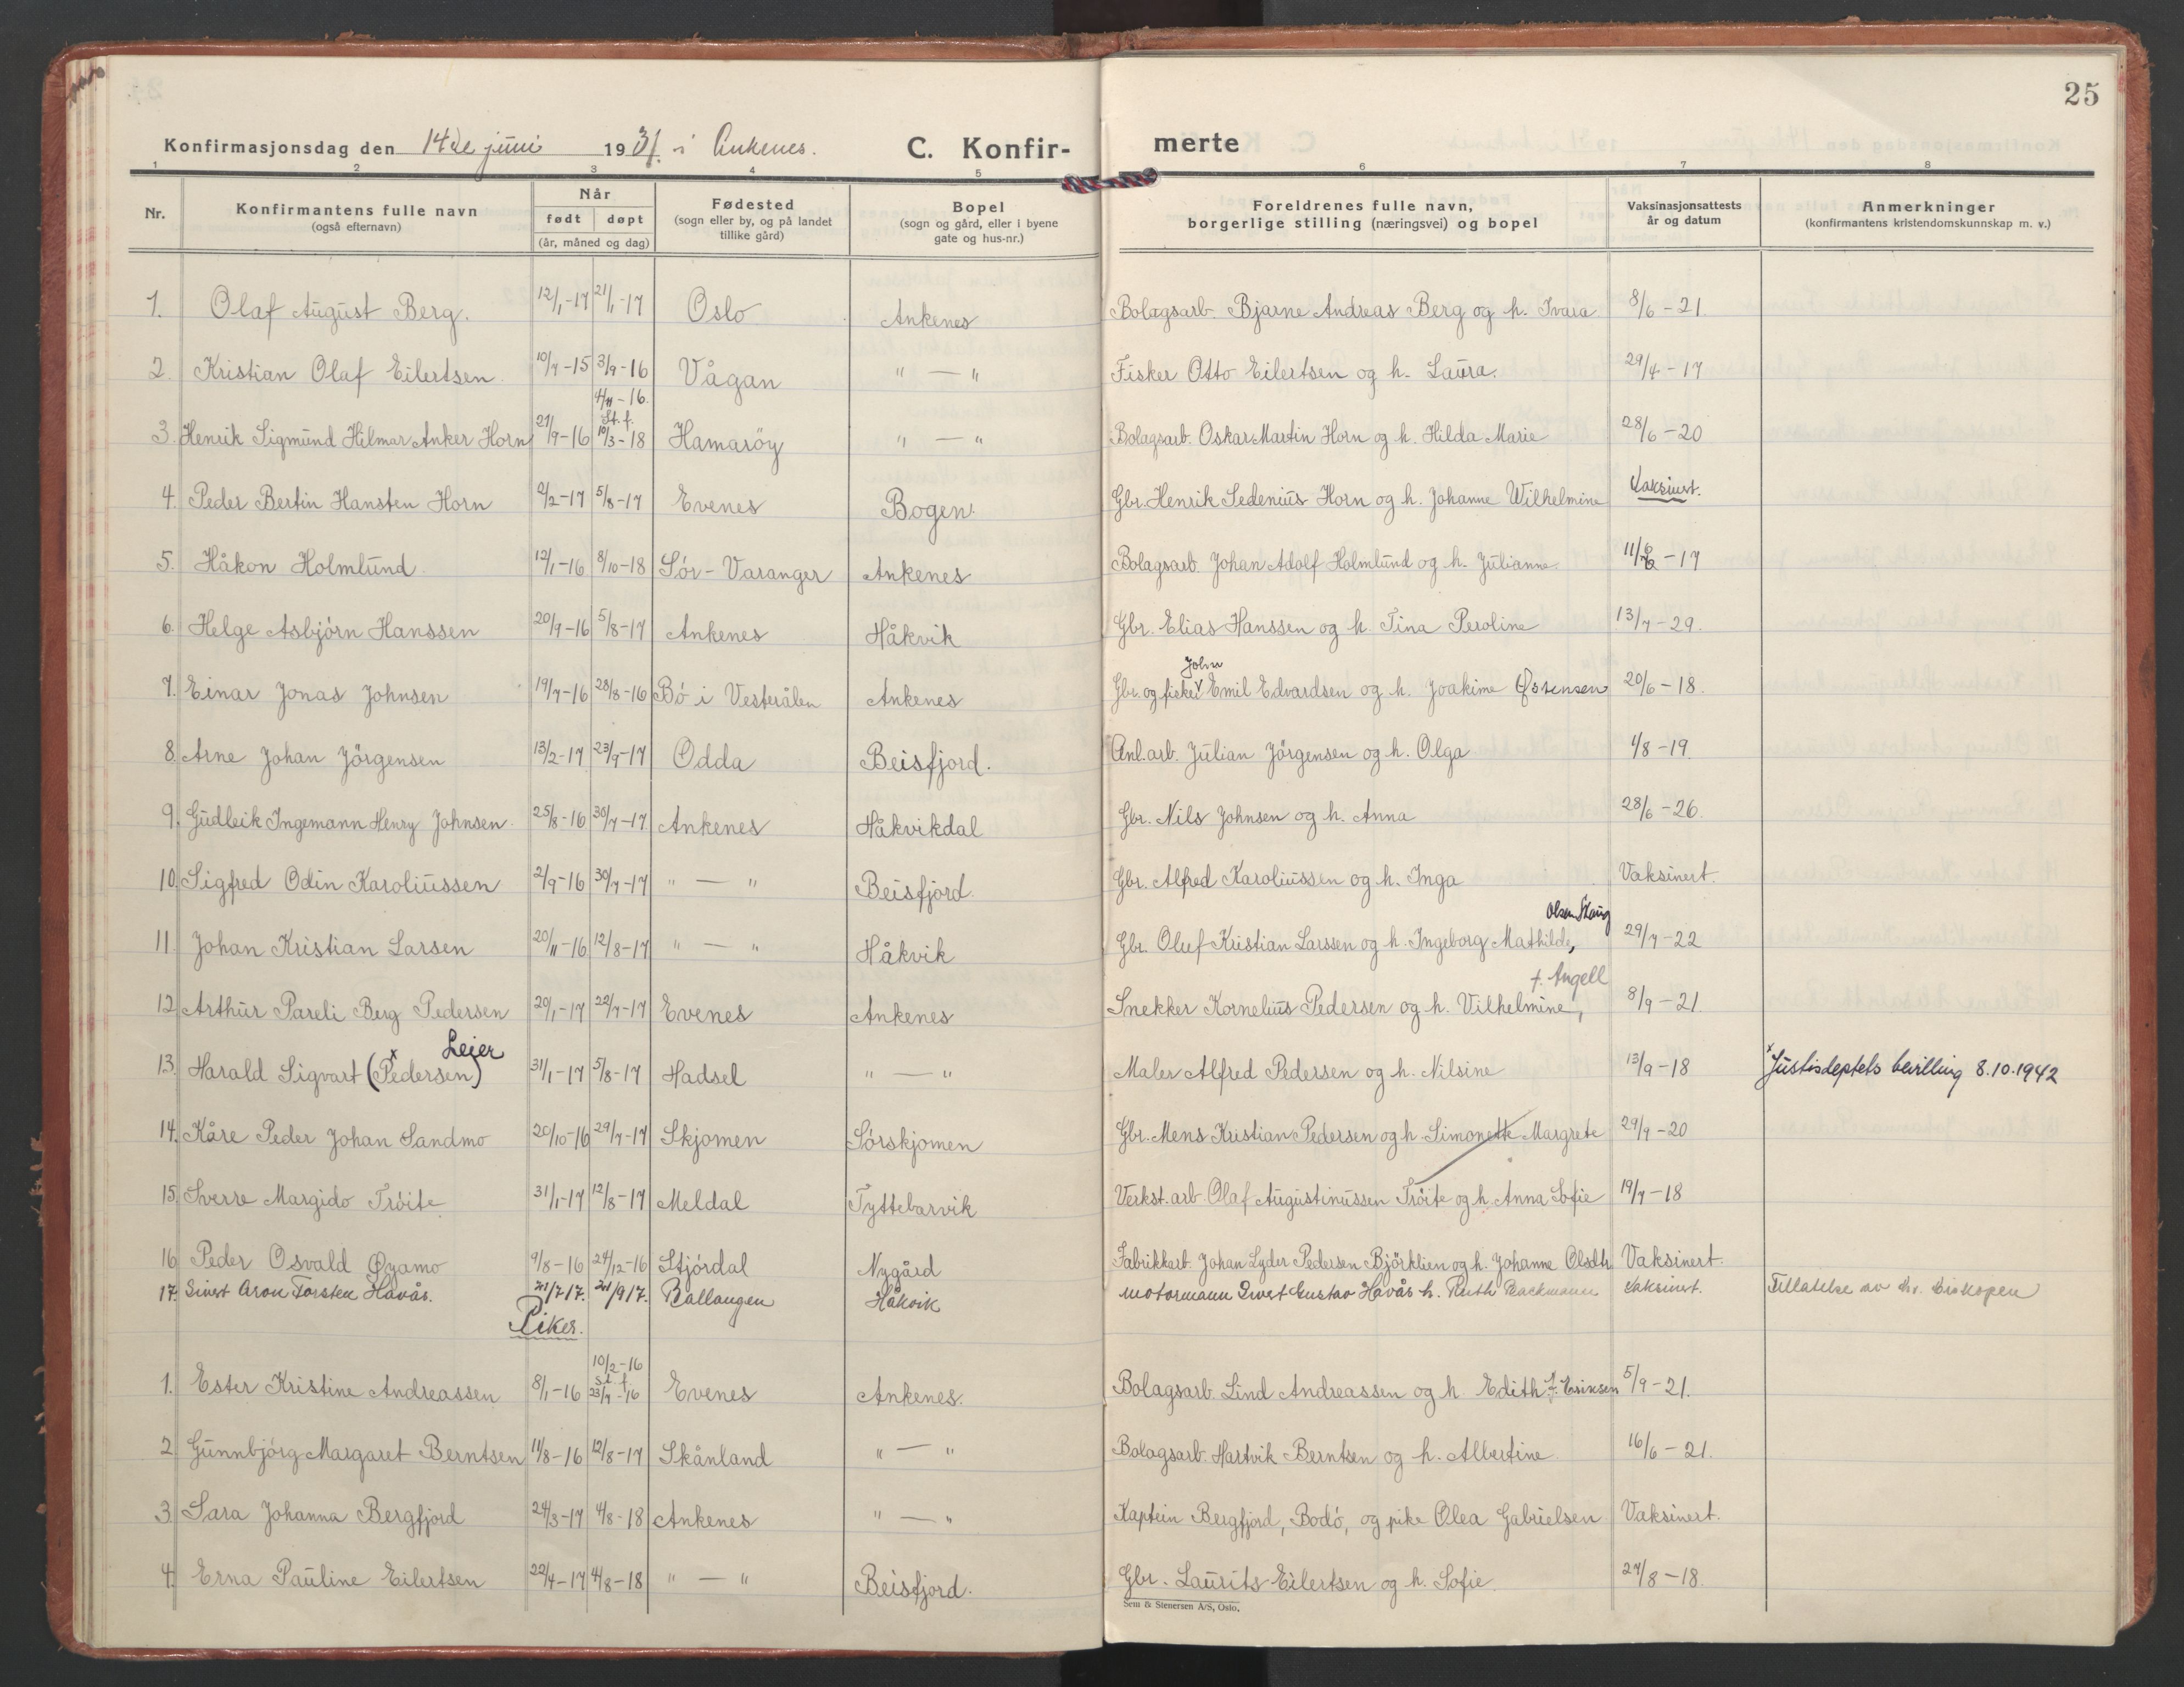 25
Konfirmasjonsdag den 14de juni 1931 i Ankenes. C. Konfir- merte
1 2 3 4 5 6 7 8
Nr. Konfirmantens fulle navn (også efternavn) Når født døpt (år, måned og dag) Fødested (sogn eller by, og på landet tillike gård) Bopel (sogn og gård, eller i byene gate og hus-nr.) Foreldrenes fulle navn, borgerlige stilling (næringsvei) og bopel Vaksinasjonsattests år og datum Anmerkninger (konfirmantens kristendomskunnskap m. v.)
1. Olaf August Berg. 12/1-17 21/1-17 Oslo Ankenes Bolagsarb. Bjarne Andreas Berg og h. Ivara. 8/6-21.
2. Kristian Olaf Eilertsen. 10/7-15 3/9-16 Vågan " — " Fisker Otto Eilertsen og h. Laura. 29/4-17
4/11-16. St. f.
3. Henrik Sigmund Hilmar Anker Horn 27/9-16 10/3-18 Hamarøy " — " Bolagsarb. Oskar Martin Horn og h. Hilda Marie 28/6-20
4. Peder Bertin Hansten Horn 2/2-17 5/8-17 Evenes Bogen. Gbr. Henrik Sedenius Horn og h. Johanne Wilhelmine Vaksinert.
5. Håkon Holmlund 12/1-16 8/10-18 Sör-Varanger Ankenes Bolagsarb. Johan Adolf Holmlund og h. Julianne. 11/6-17
6. Helge Asbjörn Hanssen 20/9-16 5/8-17 Ankenes Håkvik Gbr. Elias Hanssen og h. Tina Peroline 13/7-29.
John
7. Einar Jonas Johnsen 19/7-16 28/8-16 Bö i Vesterålen Ankenes Gbr. og fisker Emil Edvardsen og h. Joakime Sörensen 20/6-18.
8. Arne Johan Jörgensen 13/2-17 23/9-17 Odda Beisfjord. Anl.arb. Julian Jörgensen og h. Olga 1/8-19.
9. Gudleik Ingemann Henry Johnsen. 25/8-16 30/7-17 Ankenes Håkvikdal Gbr. Nils Johnsen og h. Anna 28/6-26.
10. Sigfred Odin Karoliussen 2/9-16 30/7-17 " — " Beisfjord. Gbr. Alfred Karoliussen og h. Inga Vaksinert.
Olsen Skaug
11. Johan Kristian Larsen 20/11-16 12/8-17 " — " Håkvik Gbr. Oluf Kristian Larssen og h. Ingeborg Mathilde, 29/7-22
f. Angell
12. Arthur Pareli Berg Pedersen 20/1-17 22/7-17 Evenes Ankenes Snekker Kornelius Pedersen og h. Vilhelmine, 8/9-21.
Leier
13. Harald Sigvart (Pedersen)x 31/1-17 5/8-17 Hadsel " — " Maler Alfred Pedersen og h. Nilsine 13/9-18 x Justisdeptets bevilling 8.10.1942
14. Kåre Peder Johan Sandmo 20/10-16 29/7-17 Skjomen Sörskjomen Gbr. Mens Kristian Pedersen og h. Simonette Margrete 29/9-20
15. Sverre Margido Tröite 31/1-17 12/8-17 Meldal Tyttebærvik Verkst.arb. Olaf Augustinussen Tröite og h. Anna Sofie 19/7-18
16. Peder Osvald Øyamo 9/8-16 24/12-16 Stjördal Nygård Fabrikkarb. Johan Lyder Pedersen Björklien og h. Johanne Olsdtr. Vaksinert.
17. Sivert Aron Torsten Håvås. 21/7 17. 21/9 17. Ballangen Håkvik motormann Sivert Gustav Håvås h. Ruth Backmann Vaksinert. Tillatelse av hr. biskopen
Piker.
10/2-16 St. f.
1. Ester Kristine Andreassen 8/1-16 23/7-16 Evenes Ankenes. Bolagsarb. Lind Andreassen og h. Edith f. Eriksen 5/9-21.
2. Gunnbjörg Margaret Berntsen 11/8-16 12/8-17 Skånland " — " Bolagsarb. Hartvik Berntsen og h. Albertine 16/6-21.
3. Sara Johanna Bergfjord 24/3-17 4/8-18 Ankenes " — " Kaptein Bergfjord, Bodö, og pike Olea Gabrielsen Vaksinert.
4. Erna Pauline Eilertsen 22/4-17 4/8-18 " — " Beisfjord. Gbr. Laurits Eilertsen og h. Sofie. 27/8-18.
Sem & Stenersen A/S, Oslo.